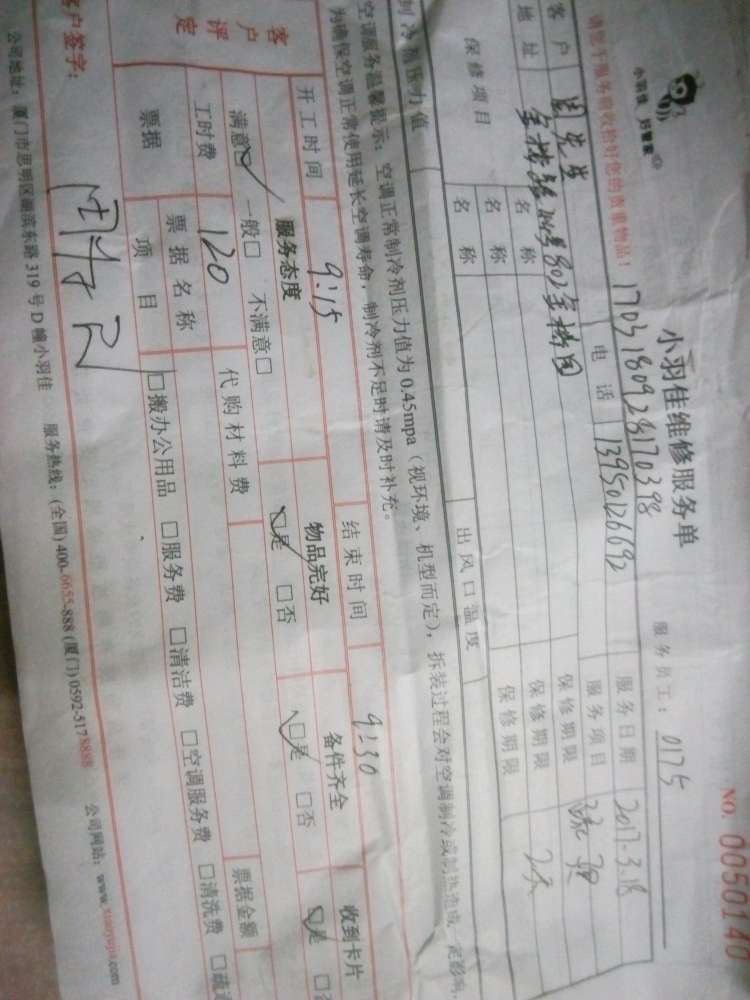 小羽佳 好管家
小羽佳维修服务单
NO. 0050140
1703180928170398
服务员工: 0175
请您于服务前收拾好您的贵重物品!
客户 周先生 电话 13950126692 服务日期 2017.3.18
地址 802金桥园 服务项目
保修项目 名称 保修期限
名称 保修期限
名称 保修期限
制冷循压力值 出风口温度
空调服务温馨提示: 空调正常制冷剂压力值为 0.45mpa (视环境、机型而定), 拆装过程会对空调制冷或制热造成一定影响,
为确保空调正常使用延长空调寿命, 制冷剂不足时请及时补充。
开工时间 9:15 结束时间 9:30
客户评定 服务态度 物品完好 备件齐全 收到卡片
满意☑ 一般□ 不满意□ ☑是 □否 ☑是 □否 ☑是
工时费 120 代购材料费 票据金额
票据 票据名称
项目 □搬办公用品 □服务费 □清洁费 □空调服务费 □清洗费
客户签字:
公司地址: 厦门市思明区湖滨东路 319 号 D 幢小羽佳 服务热线: (全国) 400-6655-888 (厦门) 0592-5178888 公司网站: www.xiaoyujia.com